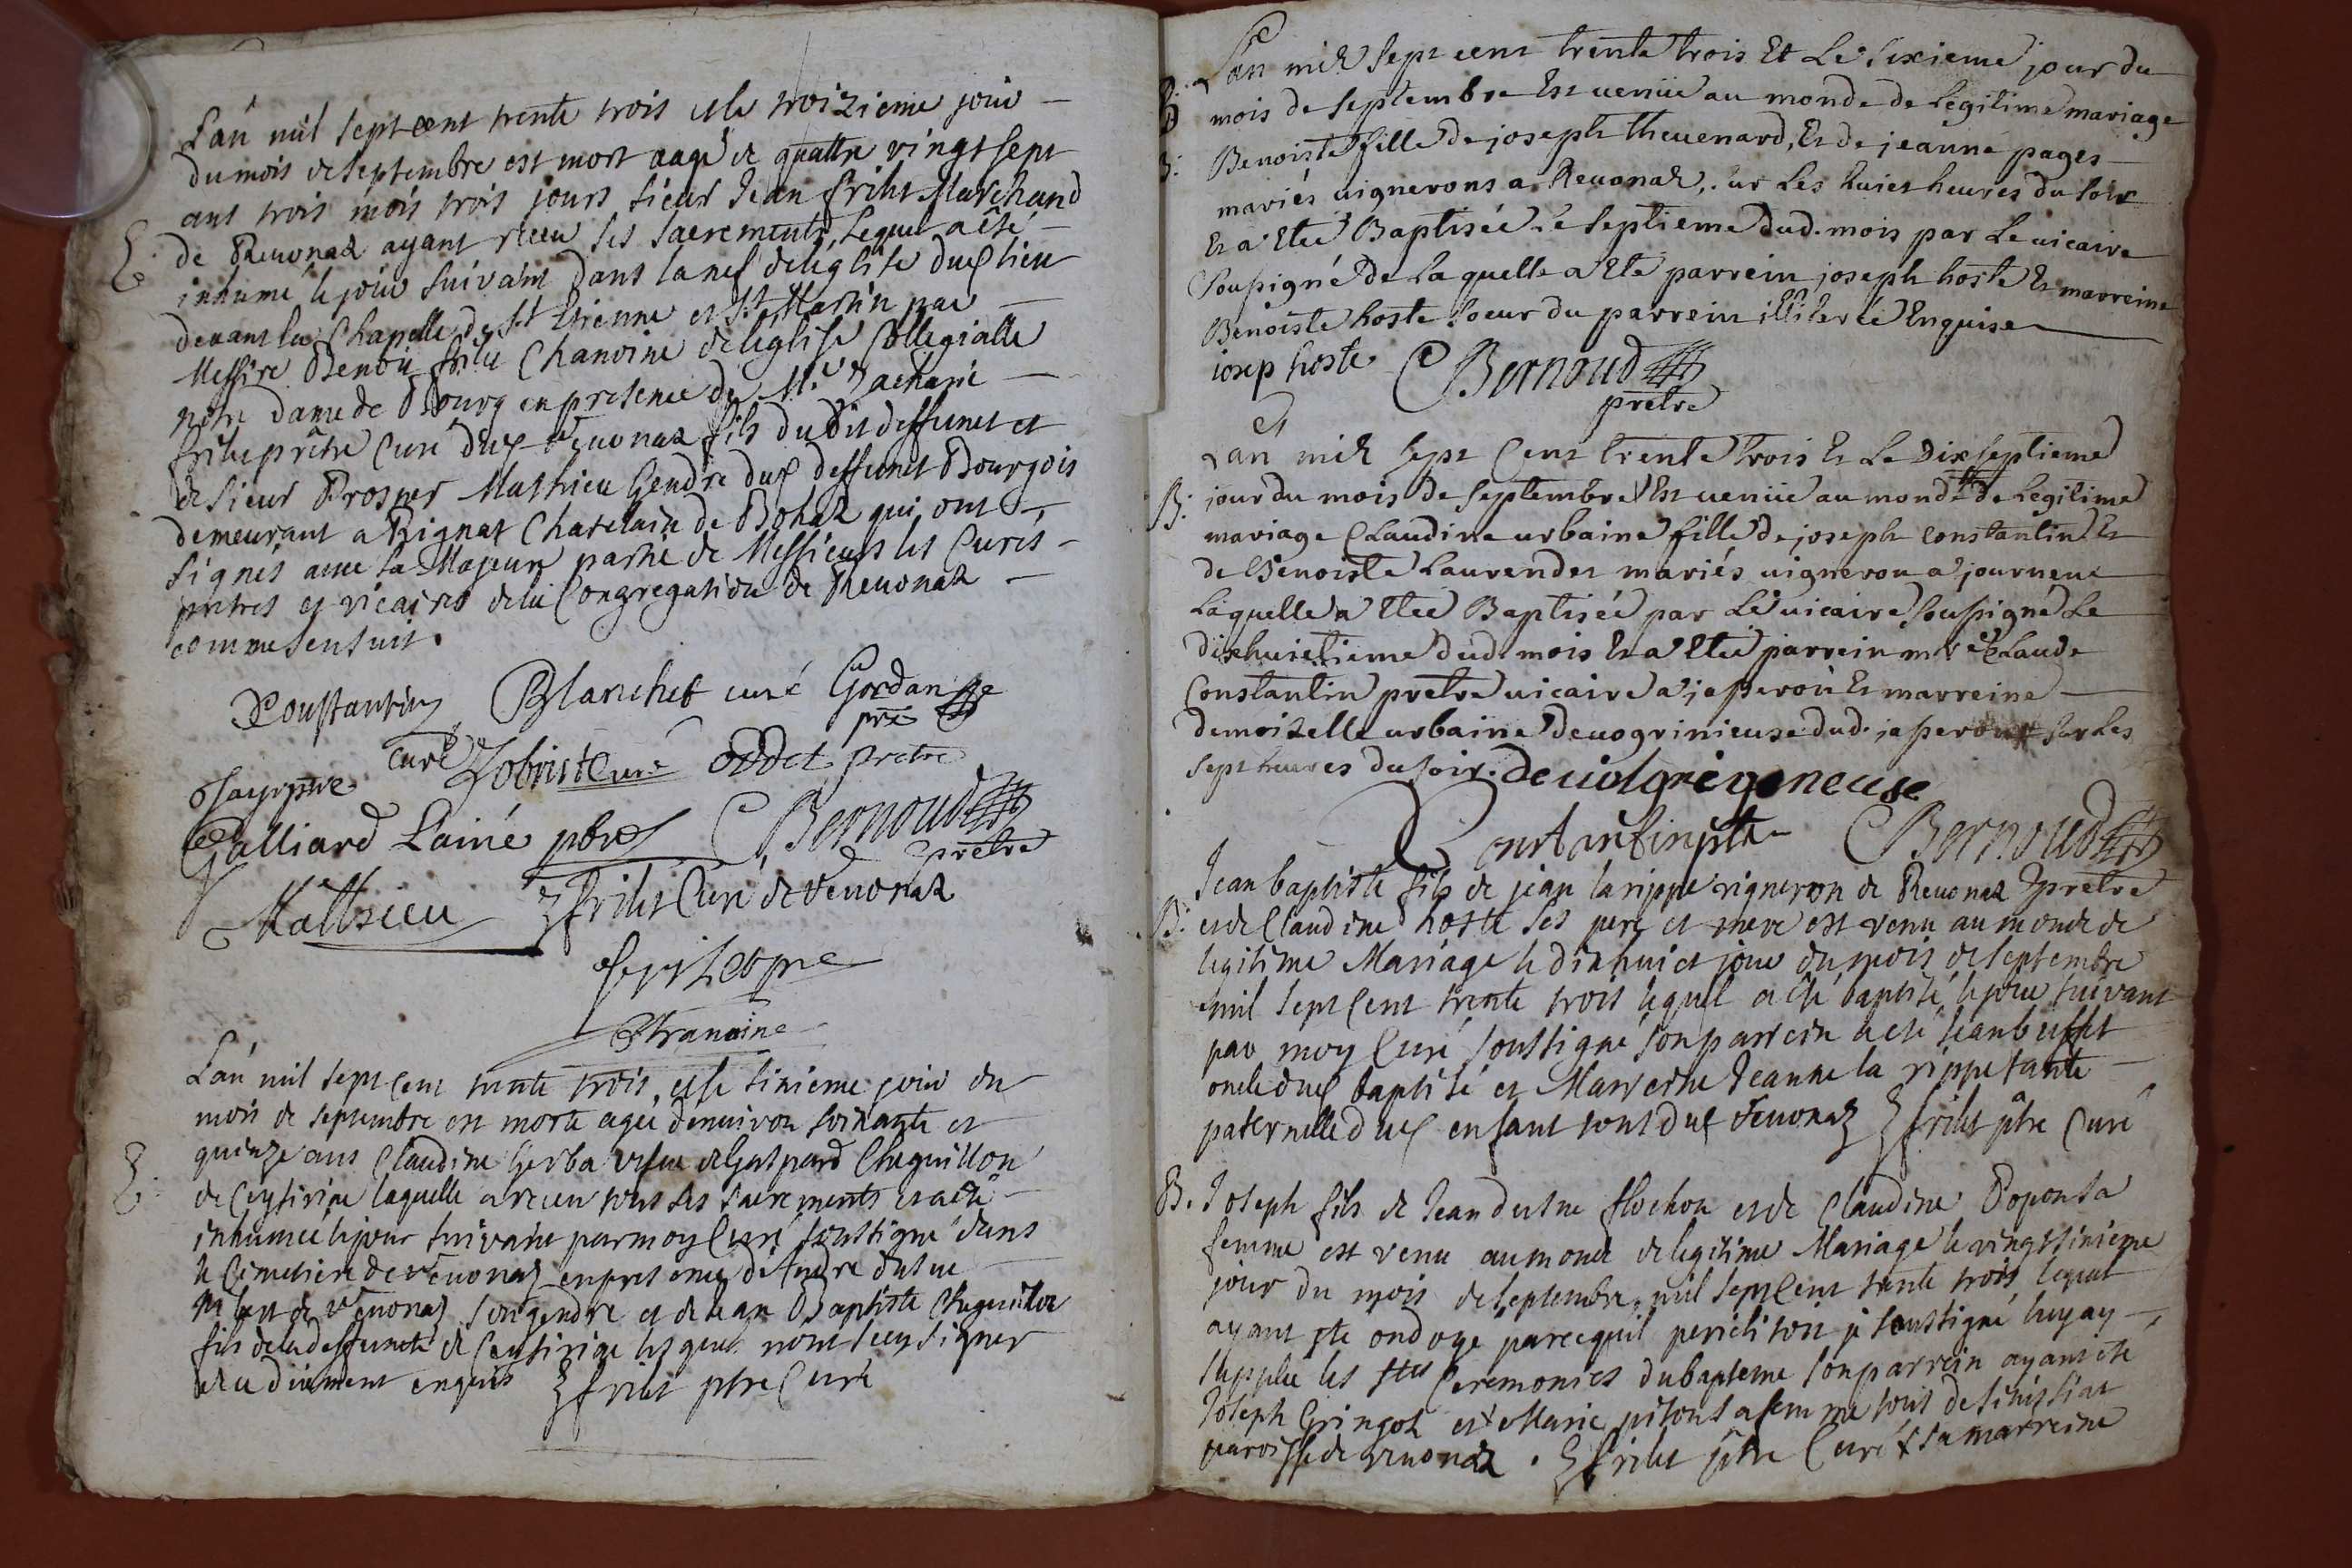 L'an mil sept cent trente trois et le troizieme jour
du mois de septembre est mort aagé de quattre vingt sept
ans trois mois trois jours sieur Jean frilet Marchand
E. de Reuonaz ayant receu ses sacrements, Lequel a êté
inhumé le jour suivant dans la nef de leglise dud lieu
devant la Chapelle de St Etienne et St Martin par
Messire Benoit frilet Chanoine de leglise Collegialle
notre dame de Bourg en presence de Mre Zacharie
frilet prêtre Curé dud Reuonaz fils du dit deffunct et
de sieur Prosper Mathieu Gendre dud deffunct Bourgois
demeurant a Rignat Chatelain de Bohaz qui ont
signés avec la Majeure partie de Messieurs les Curés
pretres et vicaires de la Congregation de Reuonaz
comme sensuit.
Constantin Blanchet curé Gordan
pre
curé curé oddet pretre
Galliard Lainé pbre C Bernoud
prêtre
Mathieu Z frilet Curé de Reuonaz
frilet pre
Chanoine
L'an mil sept cent trente trois, et le sixieme jour du
mois de septembre est morte agée denuiron soixante et
E. quinze ans Claudine Gerba vefue de Gaspard Cheguillon
de Ceysirieu laquelle a receu tous ses sacrements et a eté
inhumée le jour suivant par moy Curé soussigné dans
le Cimetiere de Reuonaz en presence de
de Reuonaz son gendre et de Jean Baptiste Cheguillon
fils de la deffuncte de lesquels nont sceu signer
de ce diument enquis Z frilet ptre Curé
L'an mil sept cent trente trois Et Le sixieme jour du
B. mois de septembre Est venüe au monde de Legitime mariage
Benoiste fille de joseph theuenard, Et de jeanne pages
mariés uignerons a Reuonaz, sur Les huict heures du soir
Et a Etée Baptisée Le septieme dud. mois par Le uicaire
Soussigné de Laquelle a Eté parrein joseph hoste Et marreine
Benoiste hoste soeur du parrein illiterée Enquise
iosep hoste C Bernoud
prêtre
L'an mil sept Cent trente trois Et Le Dixseptieme
B. jour du mois de septembre Est venüe au monde de Legitime
mariage Claudine urbaine fille de joseph constantin Et
de Benoiste Laurendet mariés uigneron a journenc
Laquelle a Etée Baptisée par Le uicaire soussigné Le
dixhuictieme dud. mois Et a Etée parrein mre Claude
Constantin pretre uicaire a jaseron Et marreine
demoiselle urbaine deuogrinieuse dud. jaseron sur Les
sept heures du soir. de uolgrigneneuse
Constantin ptre C Bernoud
B. Jean baptiste fils de jean larippe vigneron de Reuonaz prêtre
et de Claudine hoste ses pere et mere est venu au monde de
legitime Mariage le dixhuict jour du mois de septembre
mil sept Cent trente trois lequel a été baptisé le jour suivant
par moy Curé soussigné son parrein a eté Jean buffet
oncle dud baptisé et Marreine Jeanne la rippe tante
paternelle dud enfant tous dud Reuonaz Z frilet ptre Curé
B. Joseph fils de Jean flochon et de Claudine Popon sa
femme est venu au monde de legitime Mariage le vingt sixieme
jour du mois de septembre, mil sept Cent trente trois, lequel
ayant eté ondoyé parcequil periclitoit je soussigné luy ay
supplée les stes Ceremonies du bapteme son parrein ayant eté
Joseph Gringoz et x Marie piton sa femme tous de
paroisse de Reuonaz. Z frilet ptre Curé x sa marreine